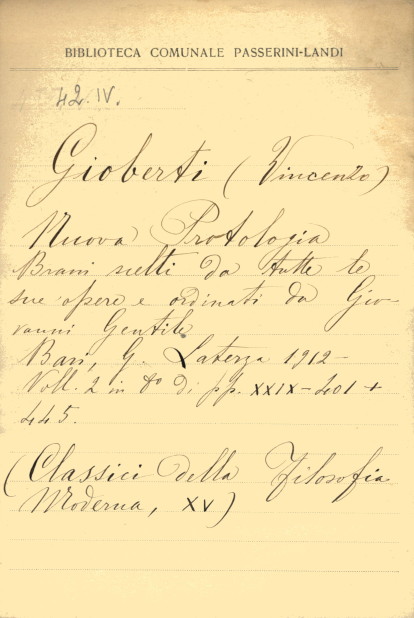 BIBLIOTECA COMUNALE PASSERINI-LANDI
42.IV.
Gioberti (Vincenzo)
Nuova Protologia
Brani scelti da tutte le
sue opere e ordinati da Gio-
vanni Gentile
Bari, G. Laterza 1912-
Voll. 2 in 8º di pp. XXIX-401 +
445.
(Classici della Filosofia
Moderna, XV)